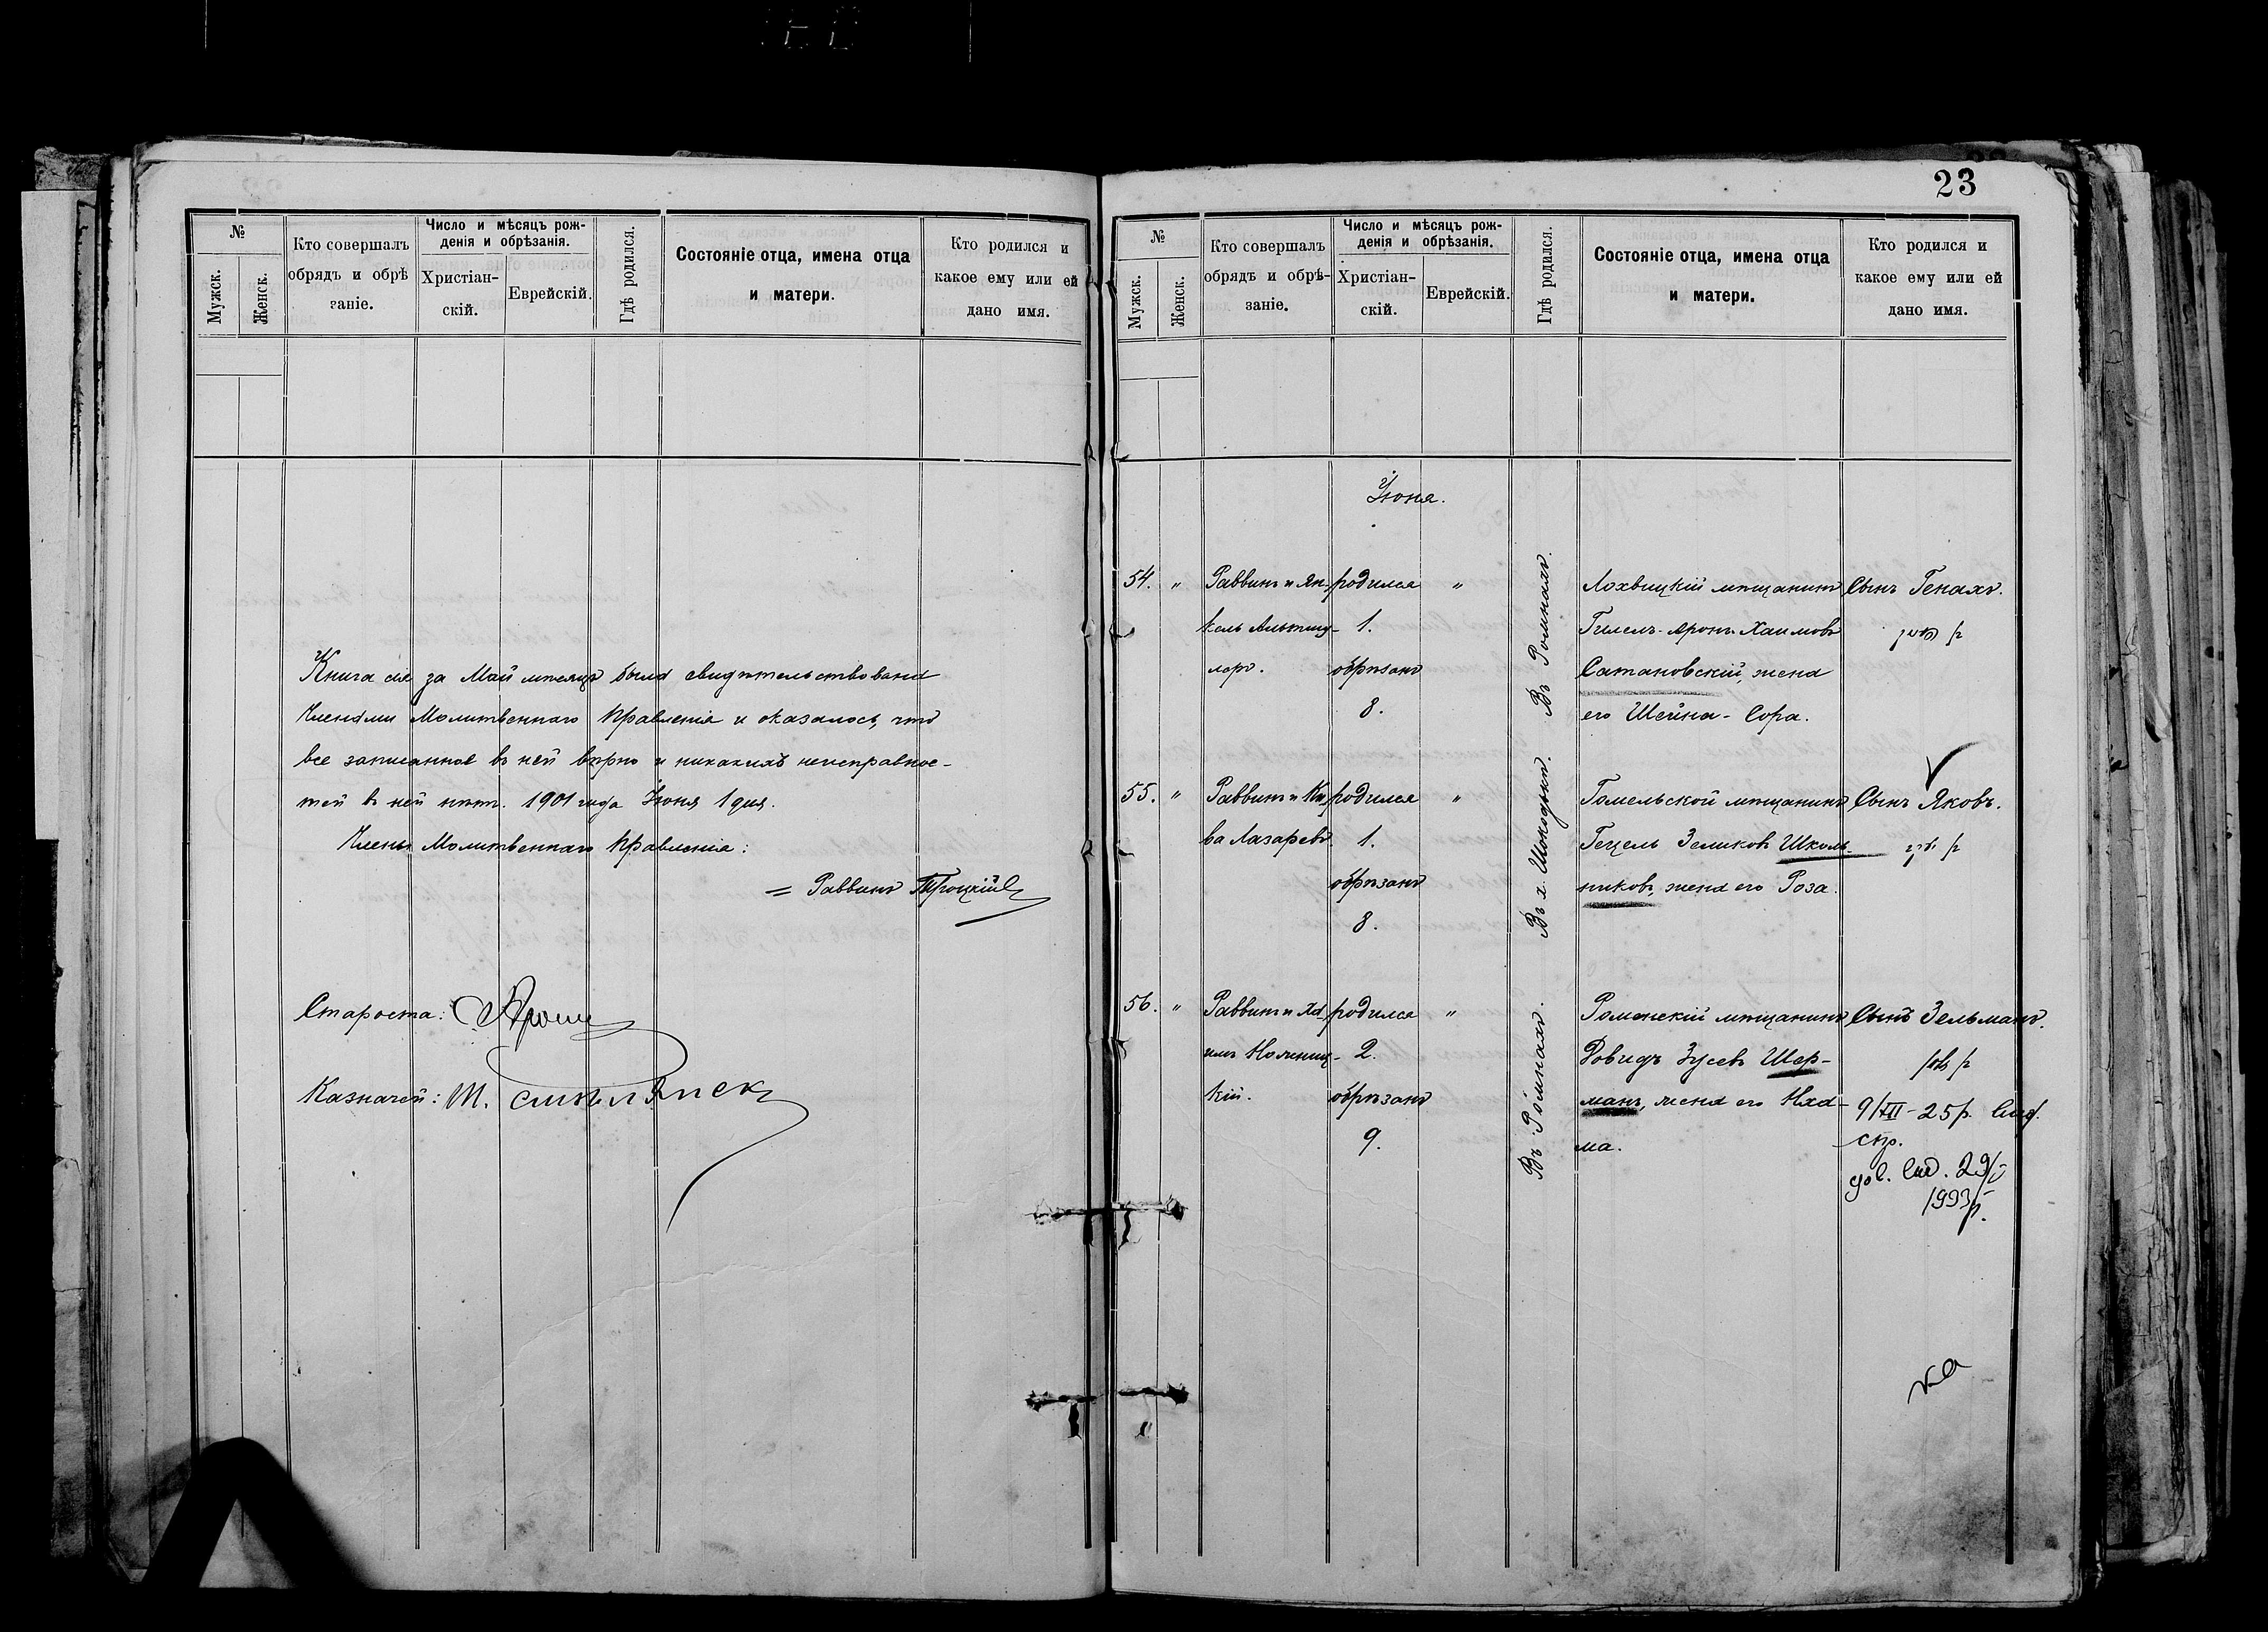 23
№
Мужск.
Женск.
Кто совершалъ
обрядъ и обрѣ
заніе.
Число и мѣсяцъ рож-
денія и обрѣзанія.
Христіан-
скій.
Еврейскій.
Гдѣ родился.
Состояніе отца, имена отца
и матери.
Кто родился и
какое ему или ей
дано имя.
Книга сія за Май мѣсяцъ была свидѣтельствована
Членами Молитвеннаго Правленія и оказалось, что
все записанное въ ней вѣрно и никакихъ неисправнос-
тей въ ней нѣтъ. 1901 года Іюня 1 дня.
Члены Молитвеннаго Правленія:
= Раввинъ Троцкій
Староста:
Казначей: М.
№
Мужск.
Женск.
Кто совершалъ
обрядъ и обрѣ-
заніе.
Число и мѣсяцъ рож-
денія и обрѣзанія.
Христіан-
скій.
Еврейскій.
Гдѣ родился.
Состояніе отца, имена отца
и матери.
Кто родился и
какое ему или ей
дано имя.
Іюня.
54. "
Раввинъ и Ян-
кель
родился
1.
обрѣзанъ
8.
"
Въ Ромнахъ.
Лохвицкій мѣщанинъ
Гилель-Аронъ Хаимовъ
Сатановскій, жена
его Шейна-Сора.
Сынъ Генахъ.
55. "
Раввинъ и
ва Лазаревъ.
родился
1.
обрѣзанъ
8.
"
Въ х.
Гомельской мѣщанинъ
Гецель Зеликовъ Школь-
никовъ, жена его Роза.
Сынъ Яковъ.
56. "
Раввинъ и Ха-
имъ
кій.
родился
2.
обрѣзанъ
9.
"
Въ Ромнахъ.
Роменскій мѣщанинъ
Довидъ Зусевъ Шер-
манъ, жена его Нха-
ма.
Сынъ Зельманъ.
9/XII-25р.